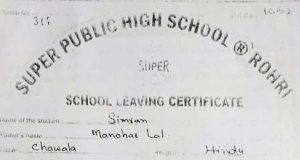 311
1652
SUPER PUBLIC HIGH SCHOOL ® ROHRI
SUPER
SCHOOL LEAVING CERTIFICATE
Name of the student Simran
Father's name Manohar Lal
Chawala Hindu